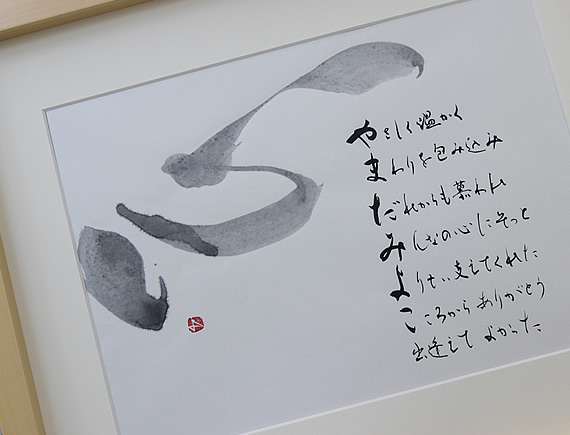 心
やさしく温かく
まわりを包み込み
だれからも慕われ
みんなの心にそっと
よりそい支えてくれた
こころから ありがとう
出逢えて よかった